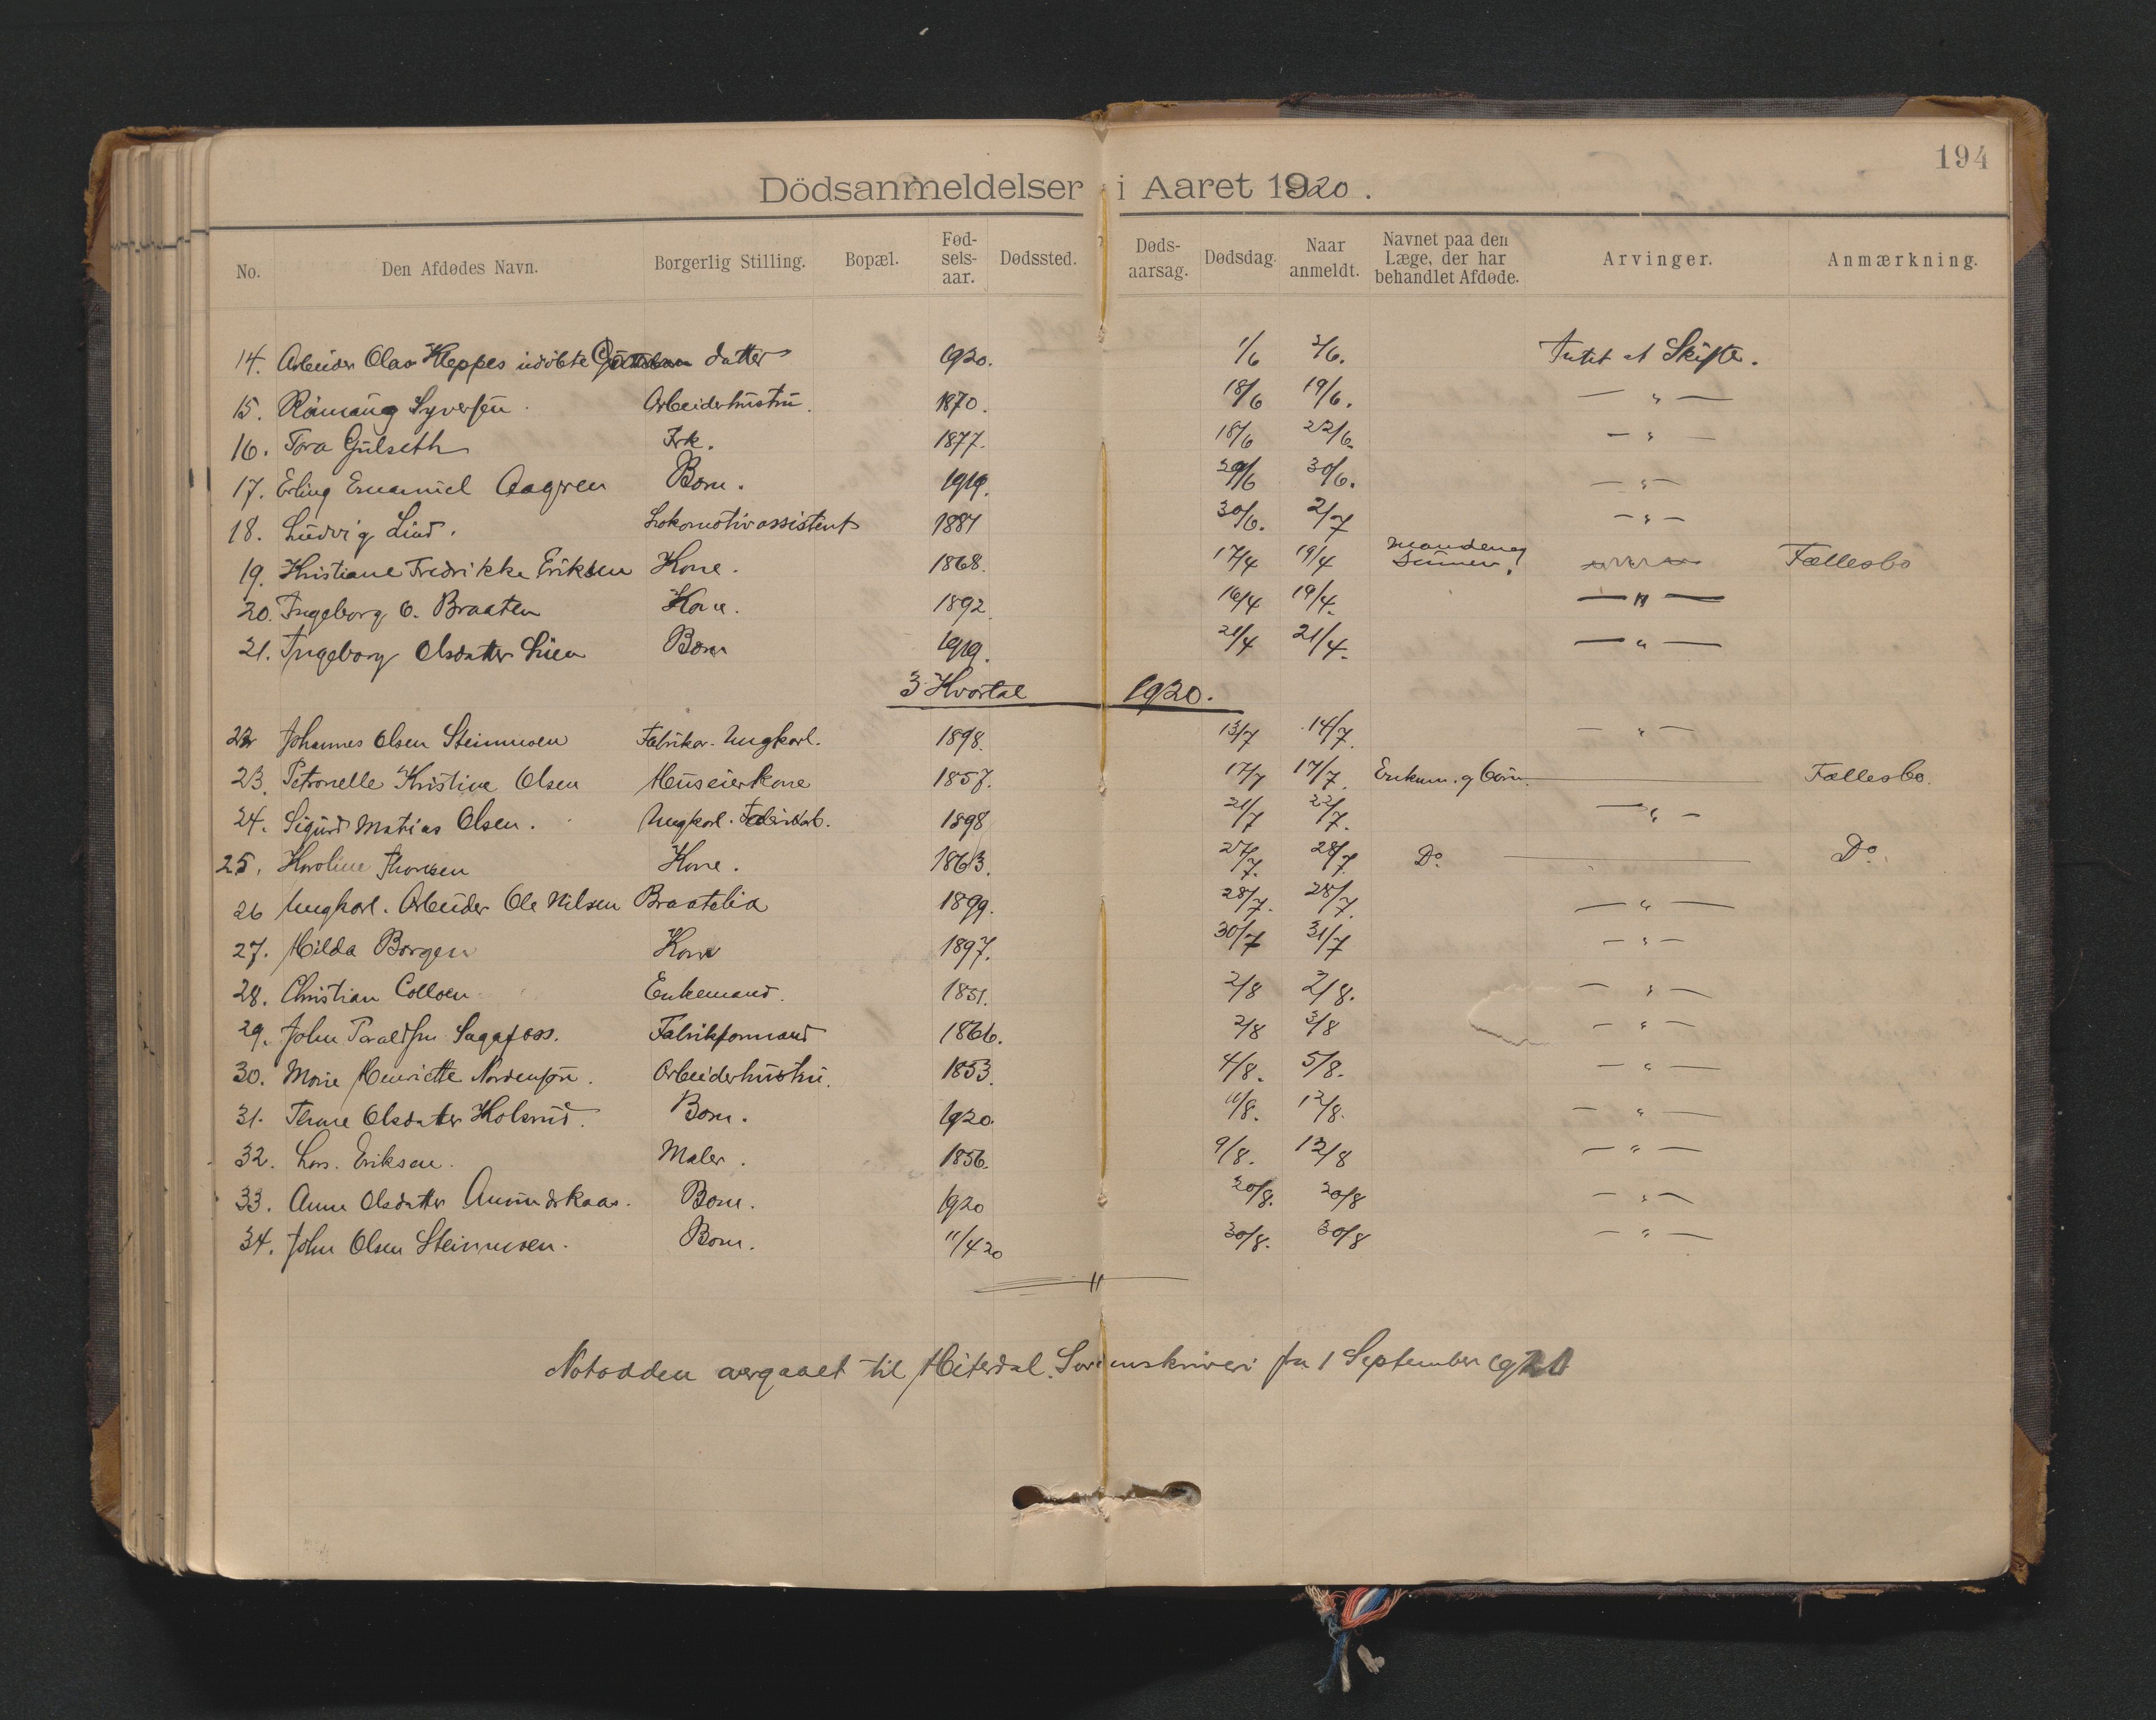 194
Dödsanmeldelser i Aaret 1920.
No. Den Afdødes Navn. Borgerlig Stilling. Bopæl. Fød-sels-aar. Dødssted. Døds-aarsag. Dødsdag. Naar anmeldt. Navnet paa den Læge, der har behandlet Afdøde. Arvinger. Anmærkning.
14. Arbeider Olav Kleppes udöbte datter 1920. 1/6 2/6. Intet at Skifte.
15. Syversen. Arbeiderhustru. 1870. 18/6 19/6. — " —
16. Tora Gulseth Frk. 1877. 18/6 22/6. — " —
17. Erling Emanuel Aagren Barn. 1919. 29/6 30/6. — " —
18. Ludvig Lind. Lokomotivassistent 1887 30/6. 2/7 — " —
19. Kristiane Fredrikke Eriksen Kone. 1868. 17/4 19/4 Manden og Fællesbo
20. Ingeborg O. Braaten Kone. 1892 16/4 19/4. — " —
21. Ingeborg Olsdatter Lien Barn 1919. 21/4 21/4. — " —
3 Kvartal 1920.
22 Johannes Olsen Steinmoen Fabrikar. Ungkarl. 1898. 13/7 14/7. — " —
23. Petronelle Kristine Olsen Huseierkone 1857. 17/7 17/7. Enkem. og börn. Fællesbo.
24. Sigurd Matias Olsen. Ungkarl. 1898 21/7 22/7. — " —
25. Karoline Thorsen Kone. 1863. 27/7. 28/7. Do. Do.
26 Ungkarl. Arbeider Ole Nilsen Braatelia 1899. 28/7. 28/7. — " —
27. Hilda Borgen Kone 1897. 30/7 31/7 — " —
28. Christian Enkemand. 1851. 2/8 2/8. — " —
29. John Taraldsen Sagafoss. Fabrikformand 1866. 2/8 3/8 — " —
30. Marie Henriette Nordensön. Arbeiderhustru. 1853. 4/8. 5/8. — " —
31. Olsdatter Barn. 1920. 11/8. 12/8. — " —
32. Lars. Eriksen. Maler. 1856. 9/8. 12/8 — " —
33. Anne Olsdatter Amundskaas. Barn. 1920 20/8. 20/8 — " —
34. John Olsen Steinmoen. Barn. 11/4 20 30/8. 30/8 — " —
Notodden overgaaet til Hiterdal. Sorenskriveri fra 1 September 1920